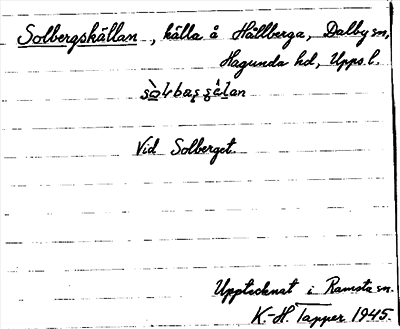 Solbergskällan, källa å Hällberga, Dalby sn,
Hagunda hd, Upps. l.
Vid Solberget.
Upptecknat i Ramsta sn.
K.-H. Tapper 1945.